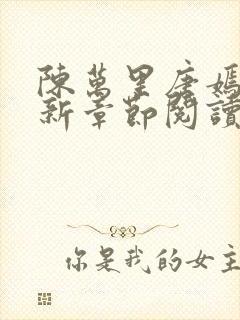 陳萬里唐嫣
新章節閱讀
你是我的女主